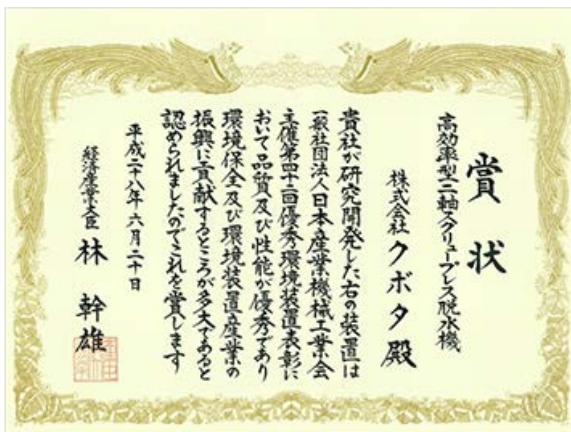 賞状
高効率型二軸スクリュープレス脱水機
株式会社クボタ殿
貴社が研究開発した右の装置は
一般社団法人日本産業機械工業会
主催第四十二回優秀環境装置表彰に
おいて品質及び性能が優秀であり
環境保全及び環境装置産業の
振興に貢献するところが多大であると
認められましたのでこれを賞します
平成二十八年六月二十日
経済産業大臣 林 幹雄